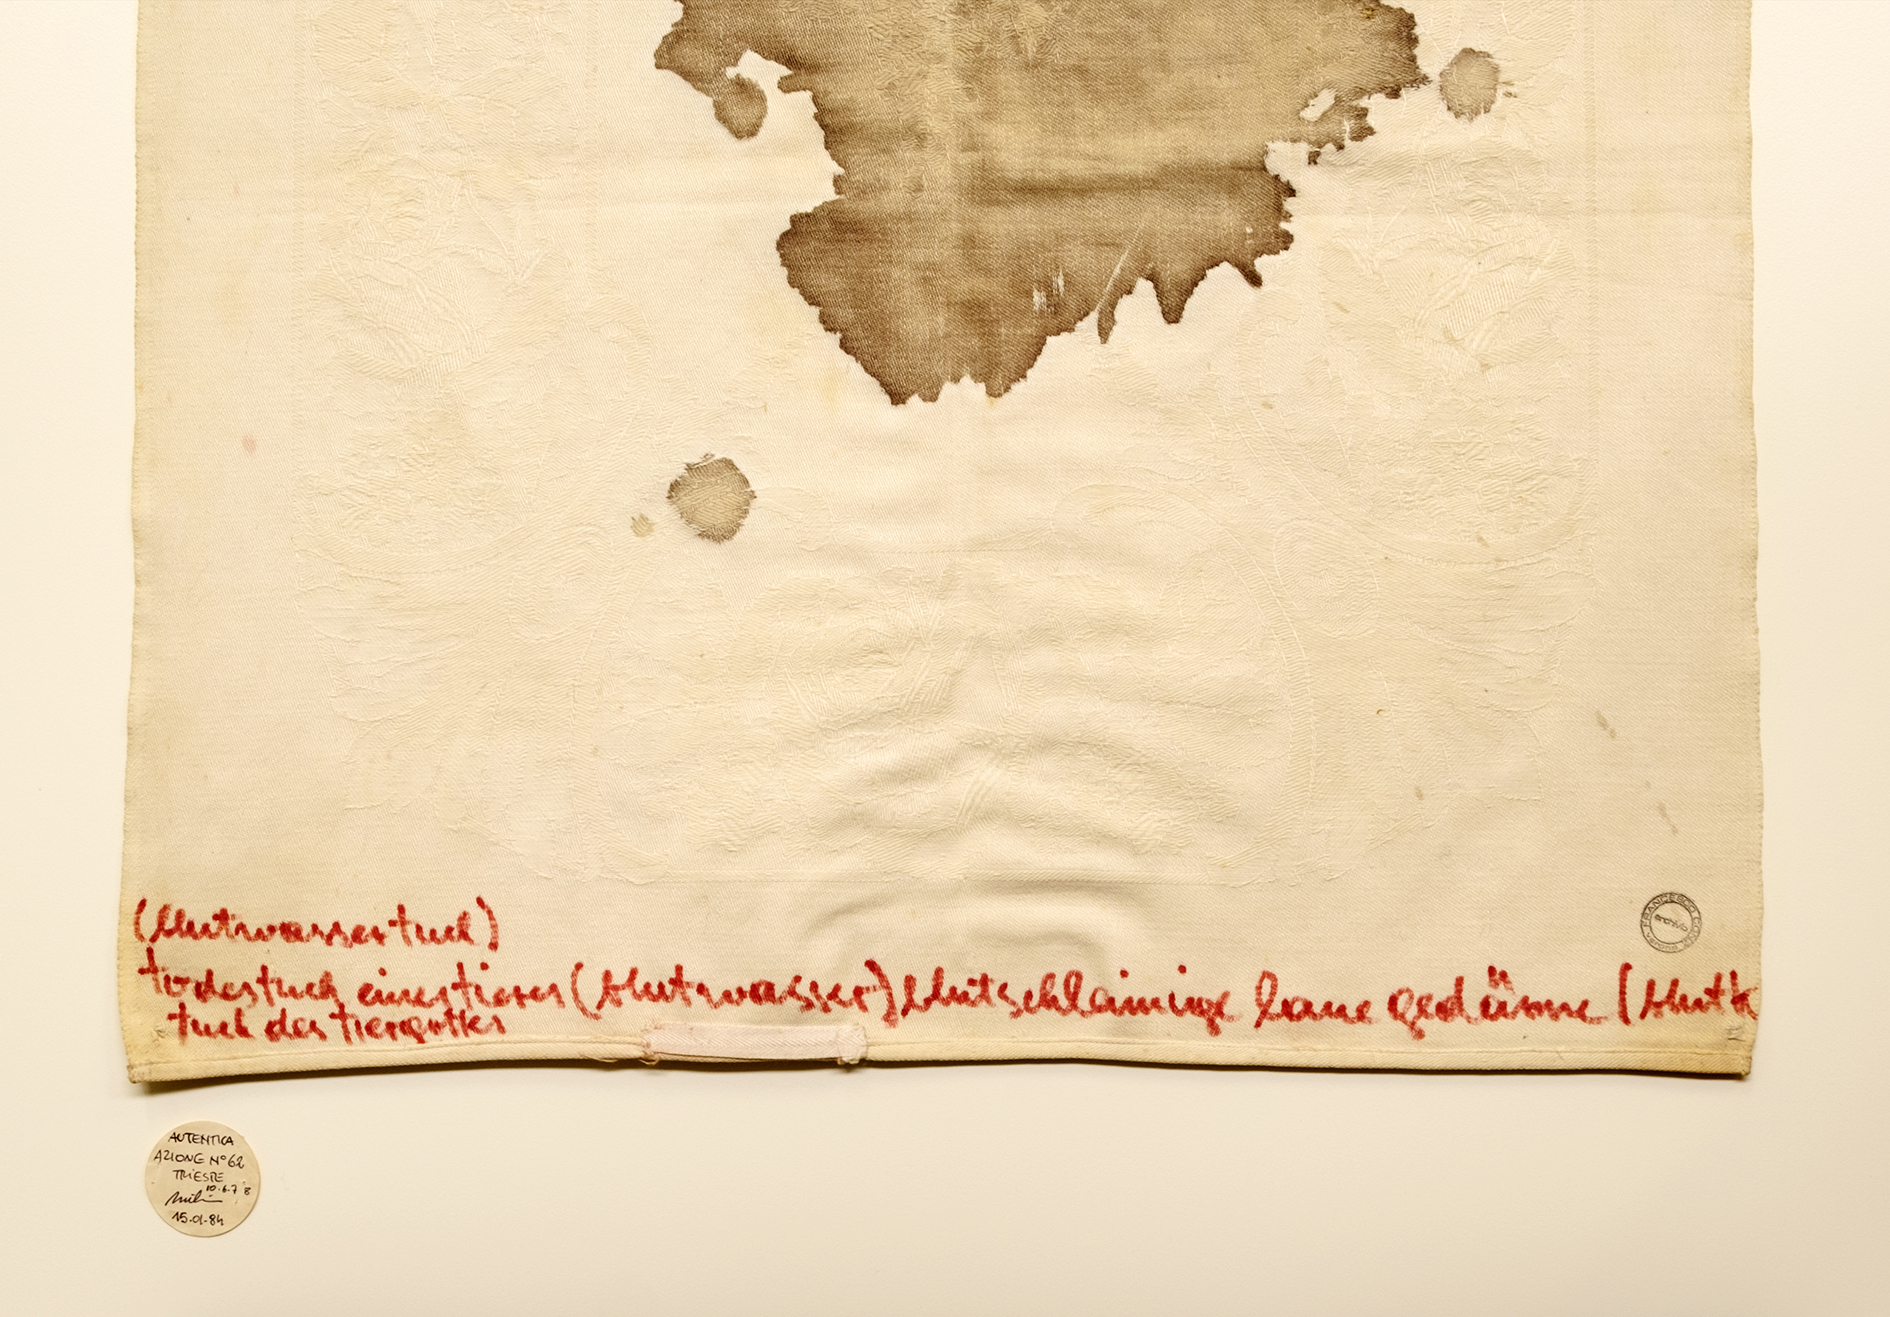 (blutwassertuch)
todestuch eines tieres (blutwasser) blutschleimige laue gedärme (blutk
tuch des tiergottes
FRANCESCO CONZ
archivio
verona
AUTENTICA
AZIONE N° 62
TRIESTE
10.6.78
15.01.84